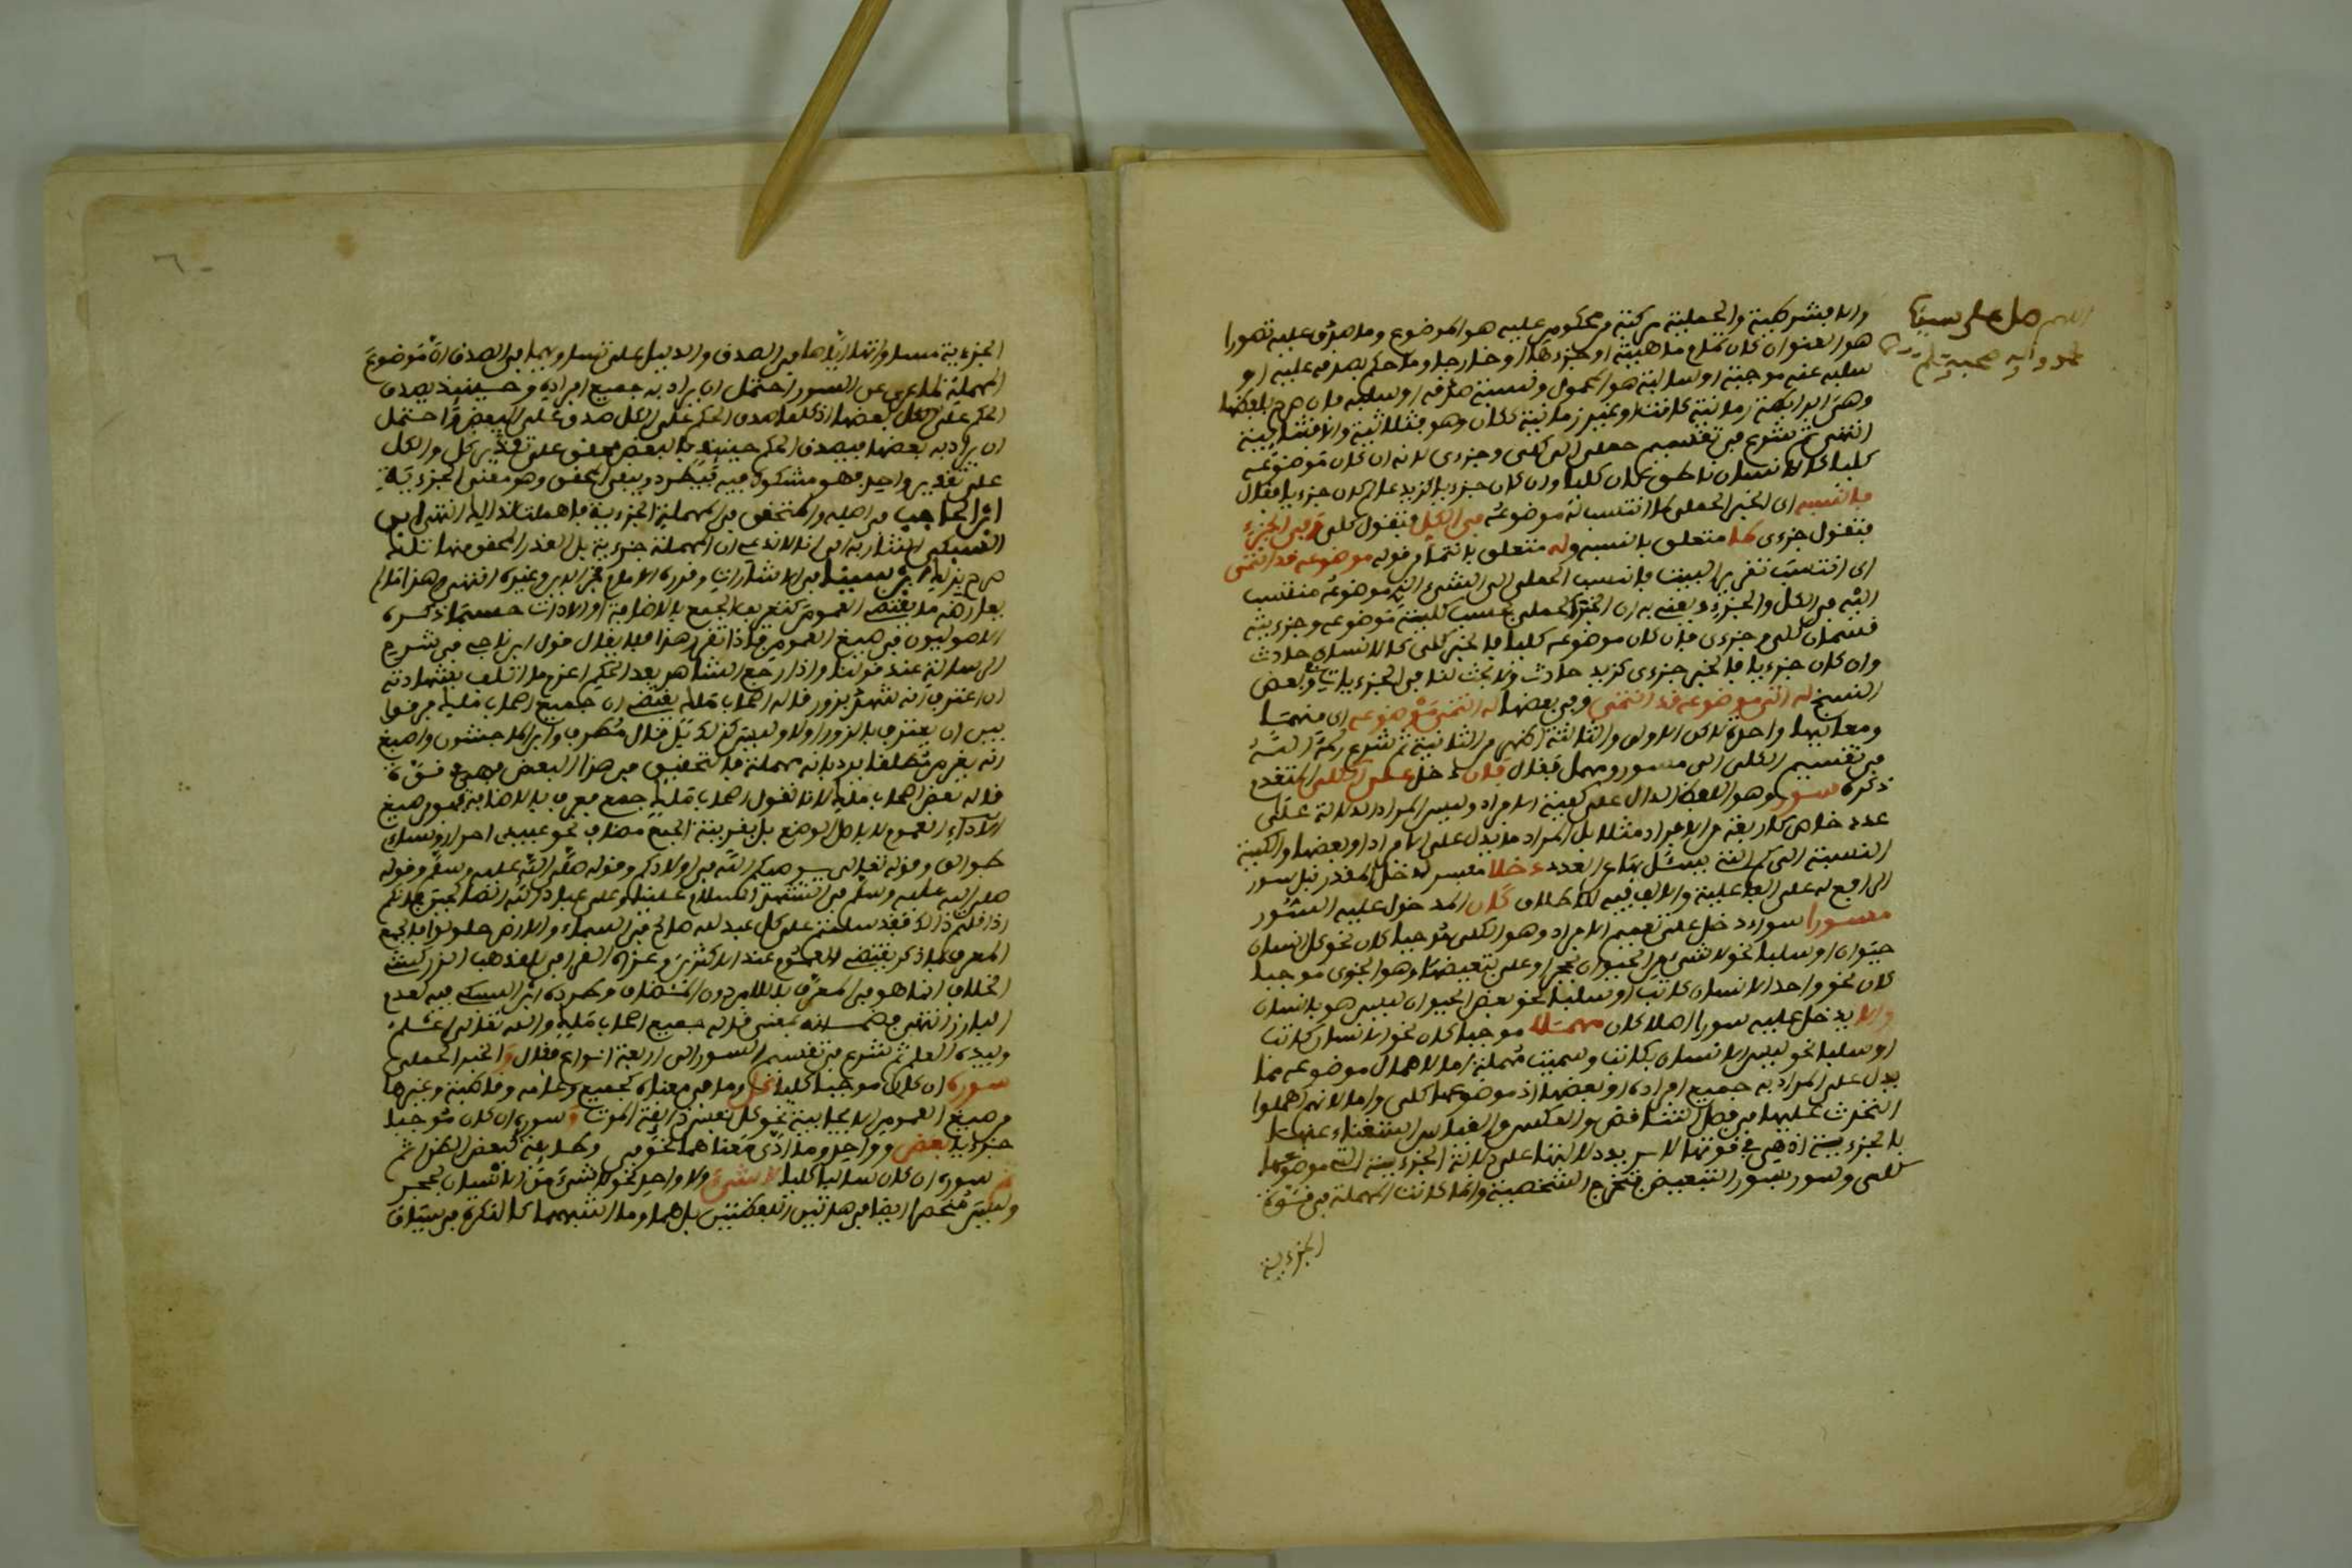 اللهم صل على سيدنا
محمد وآله وصحبه وسلم
والا فشرطية والحملية مركبة من محكوم عليه هو الموضوع وما صدق عليه تصورا
هو العنوان كان تمام ماهيته او جزءها او خارجا وما حكم بصدقه عليه او
سلبه عنه موجبة او سالبة هو المحمول ونسبة صدقه او سلبه فان صرح بلفظها
وهي الرابطة زمانية كانت او غير زمانية ككان وهو فثلاثية والا فثنائية
انتهى ثم شرع في تقسيم حملي الى كلي وجزءي لانه ان كان موضوعه
كليا كالانسان ناطق كان كليا وان كان جزءيا كزيد عالم كان جزءيا فقال
فانسبه اى الخبر الحملي لما انتسب له موضوعه في الكل فتقول كلي او في الجزء
فتقول جزءى كما متعلق بانسبه وله متعلق بانتما وقوله موضوعه قد انتمى
اى انتسب تقرير البيت فانسب الحملي الى الشيء الذي موضوعه منتسب
اليه في الكل والجزء ويعني به ان الخبر الحملي بحسب كلية موضوعه وجزءيته
قسمان كلي وجزءى فان كان موضوعه كليا فالخبر كلي كالانسان حادث
وان كان جزءيا فالخبر جزءى كزيد حادث ولا بحث لنا في الجزءيات وبعض
النسخ له الذي موضوعه قد انتمى وفي بعضها له انتمى موضوعه اى منهما
ومعانيها واحدة لاكن الاولى والثالثة اظهر من الثانية ثم شرع رحمه الله
في تقسيم الكلي الى مسور ومهمل فقال فان دخل على الكلي المتقدم
ذكره سور وهو اللفظ الدال على كمية الافراد وليس المراد الدلالة على
عدد خاص كاربعة من الافراد مثلا بل المراد ما يدل على الافراد او بعضها والكمية
النسبة الى كم التي يسئل بها عن العدد دخلا مفسر لدخل المقدر قبل سور
الرافع له على الفاعلية والالف فيه للاطلاق كان المدخول عليه السور
مسورا سواء دخل على تعميم الافراد وهو الكلي موجبا كان نحو كل انسان
حيوان او سلبا نحو لا شيء من الحيوان بحجر او على تبعيضها وهو الجزءى موجبا
كان نحو واحد الانسان كاتب او سلبا نحو بعض الحيوان ليس هو بانسان
والا يدخل عليه سور اصلا كان مهملا موجبا كان نحو الانسان كاتب
او سلبا نحو ليس الانسان بكاتب وسميت مهملة اما لاهمال موضوعه مما
يدل على المراد به جميع افراده او بعضها اذ موضوعها كلي واما لانهم اهملوا
التحدث عليها في فصل التناقض والعكس والقياس استغناء عنها
بالجزءية اذ هي في قوتها لا يرد دلالتها على دلالة الجزءية التي موضوعها
كلي وسور بسور التبعيض فتخرج الشخصية وانما كانت المهملة في قوة
الجزءية
الجزءية مساواتها اياها في الصدق والدليل على تساويهما في الصدق ان موضوع
المهملة لما عرى عن السور احتمل ان يراد به جميع افراده وحينئذ يصدق
الحكم على كل بعضها اذ كلما صدق الحكم على الكل صدق على البعض واحتمل
ان يراد به بعضها فيصدق الحكم حينئذ فالبعض محقق على تقدير كل والكل
على تقدير واحد فهو مشكوك فيه فيطرد ويبقى المحقق وهو معنى الجزءية
ابن الحاجب في اصليه والمتحقق في المهملة الجزءية فاهملت لذلك انتهى ابن
السبكي اشار به الى انا لا ندعي ان المهملة جزءية بل القدر المحقق منها ذلك
صرح بذلك ابن سينا في الاشارات وقرره الامام فخر الدين وغيره انتهى وهذا كله
بعد رفع ما يقتضي العموم كتعريف الجمع بالاضافة او الاداة حسبما ذكره
الاصوليون في صيغ العموم فاذا تقرر هذا فلا يقال قول ابن ناجي في شرح
الرسالة عند قولها واذا رجع الشاهد بعد الحكم اغرم ما اتلف بشهادته
ان اعترف انه شهد بزور قاله اصحاب مالك يقتضي ان جميع اصحاب مالك فرقوا
بين ان يعترف بالزور او لا وليس كذلك بل قال مطرف وابن الماجشون واصبغ
انه يغرم مطلقا يرد بانه مهملة فالتحقيق من هذا البعض فهو في قوة
قاله بعض اصحاب مالك لانا نقول اصحاب مالك جمع معرف بالاضافة فهو من صيغ
الاداء العموم لا بالاصل الوضع بل بقرينة الجمع مضاف نحو عبيدي احرار ونسائي
طوالق وقوله تعالى يوصيكم الله في اولادكم وقوله صلى الله عليه وسلم وقوله
صلى الله عليه وسلم في التشهد السلام علينا وعلى عباد الله الصالحين فانكم
اذا قلتم ذلك فقد سلمتم على كل عبد لله صالح في السماء والارض صلوا فالجمع
المعرف بما ذكر يقتضي العموم عند الاكثرين وعزاه القرافي للمذهب الزركشي
الخلاف انما هو في المعرف باللام دون المضاف وطرده ابن السبكي فيه لعدم
الفارق انتهى بمعنى قاله جميع اصحاب مالك والله تعالى اعلم
وبيده العلم ثم شرع في تقسيم السور الى اربعة انواع فقال والخبر الحملي
سوره ان كان موجبا كليا كل وما في معناه كجميع وعامة وقاطبة وغيرها
من صيغ العموم الايجابية نحو كل نفس ذائقة الموت و سوره ان كان موجبا
جزءيا بعض وواحد وما ادى معناهما نحو وطائفة
ثم سوره ان كان سالبا كليا لا شيء ولا واحد نحو لا شيء من الانسان بحجر
وليس منحصرا ايضا في هاتين اللفظتين بل هما وما اشبههما كالنكرة في سياق